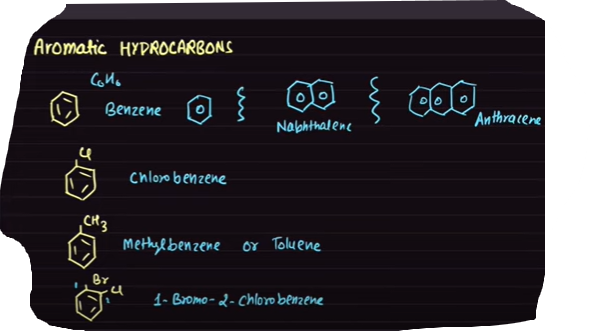 Aromatic HYDROCARBONS
C6H6
Benzene
Naphthalene
Anthracene
Cl
Chlorobenzene
CH3
Methylbenzene or Toluene
Br
Cl
1-Bromo-2-Chlorobenzene